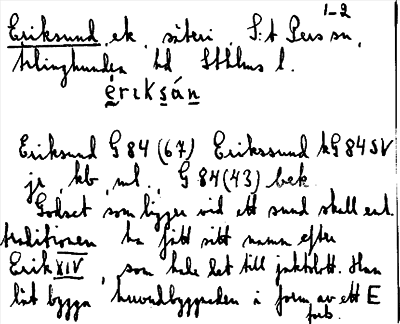 1-2
Eriksund, ek, säteri, S:t Pers sn,
Ärlinghundra hd Sthlms l.
èriksán
Eriksund G 84 (67) Erikssund kG 84 SV
jr, kb, ml., G 84 (43) bek.
Godset som ligger vid ett sund skall enl.
traditionen ha fått sitt namn efter
Erik XIV, som hade det till jaktslott. Han
lät bygga huvudbyggnaden i form av ett E